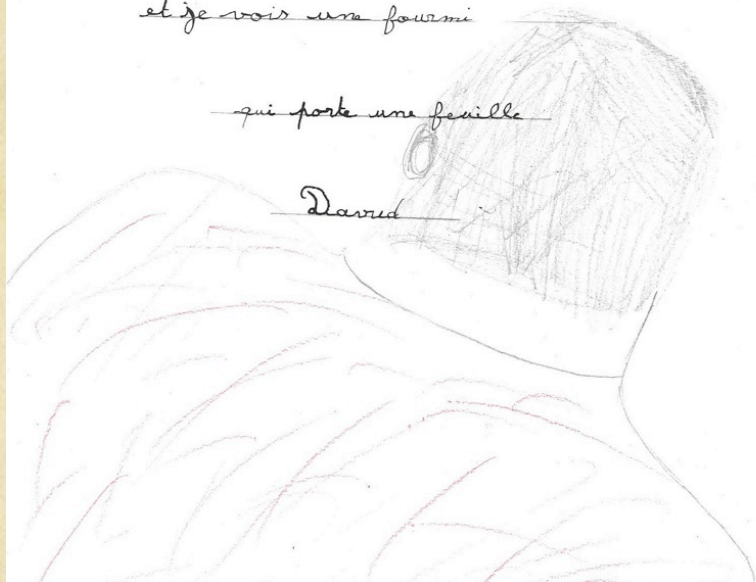 et je vois une fourmi
qui porte une feuille
David